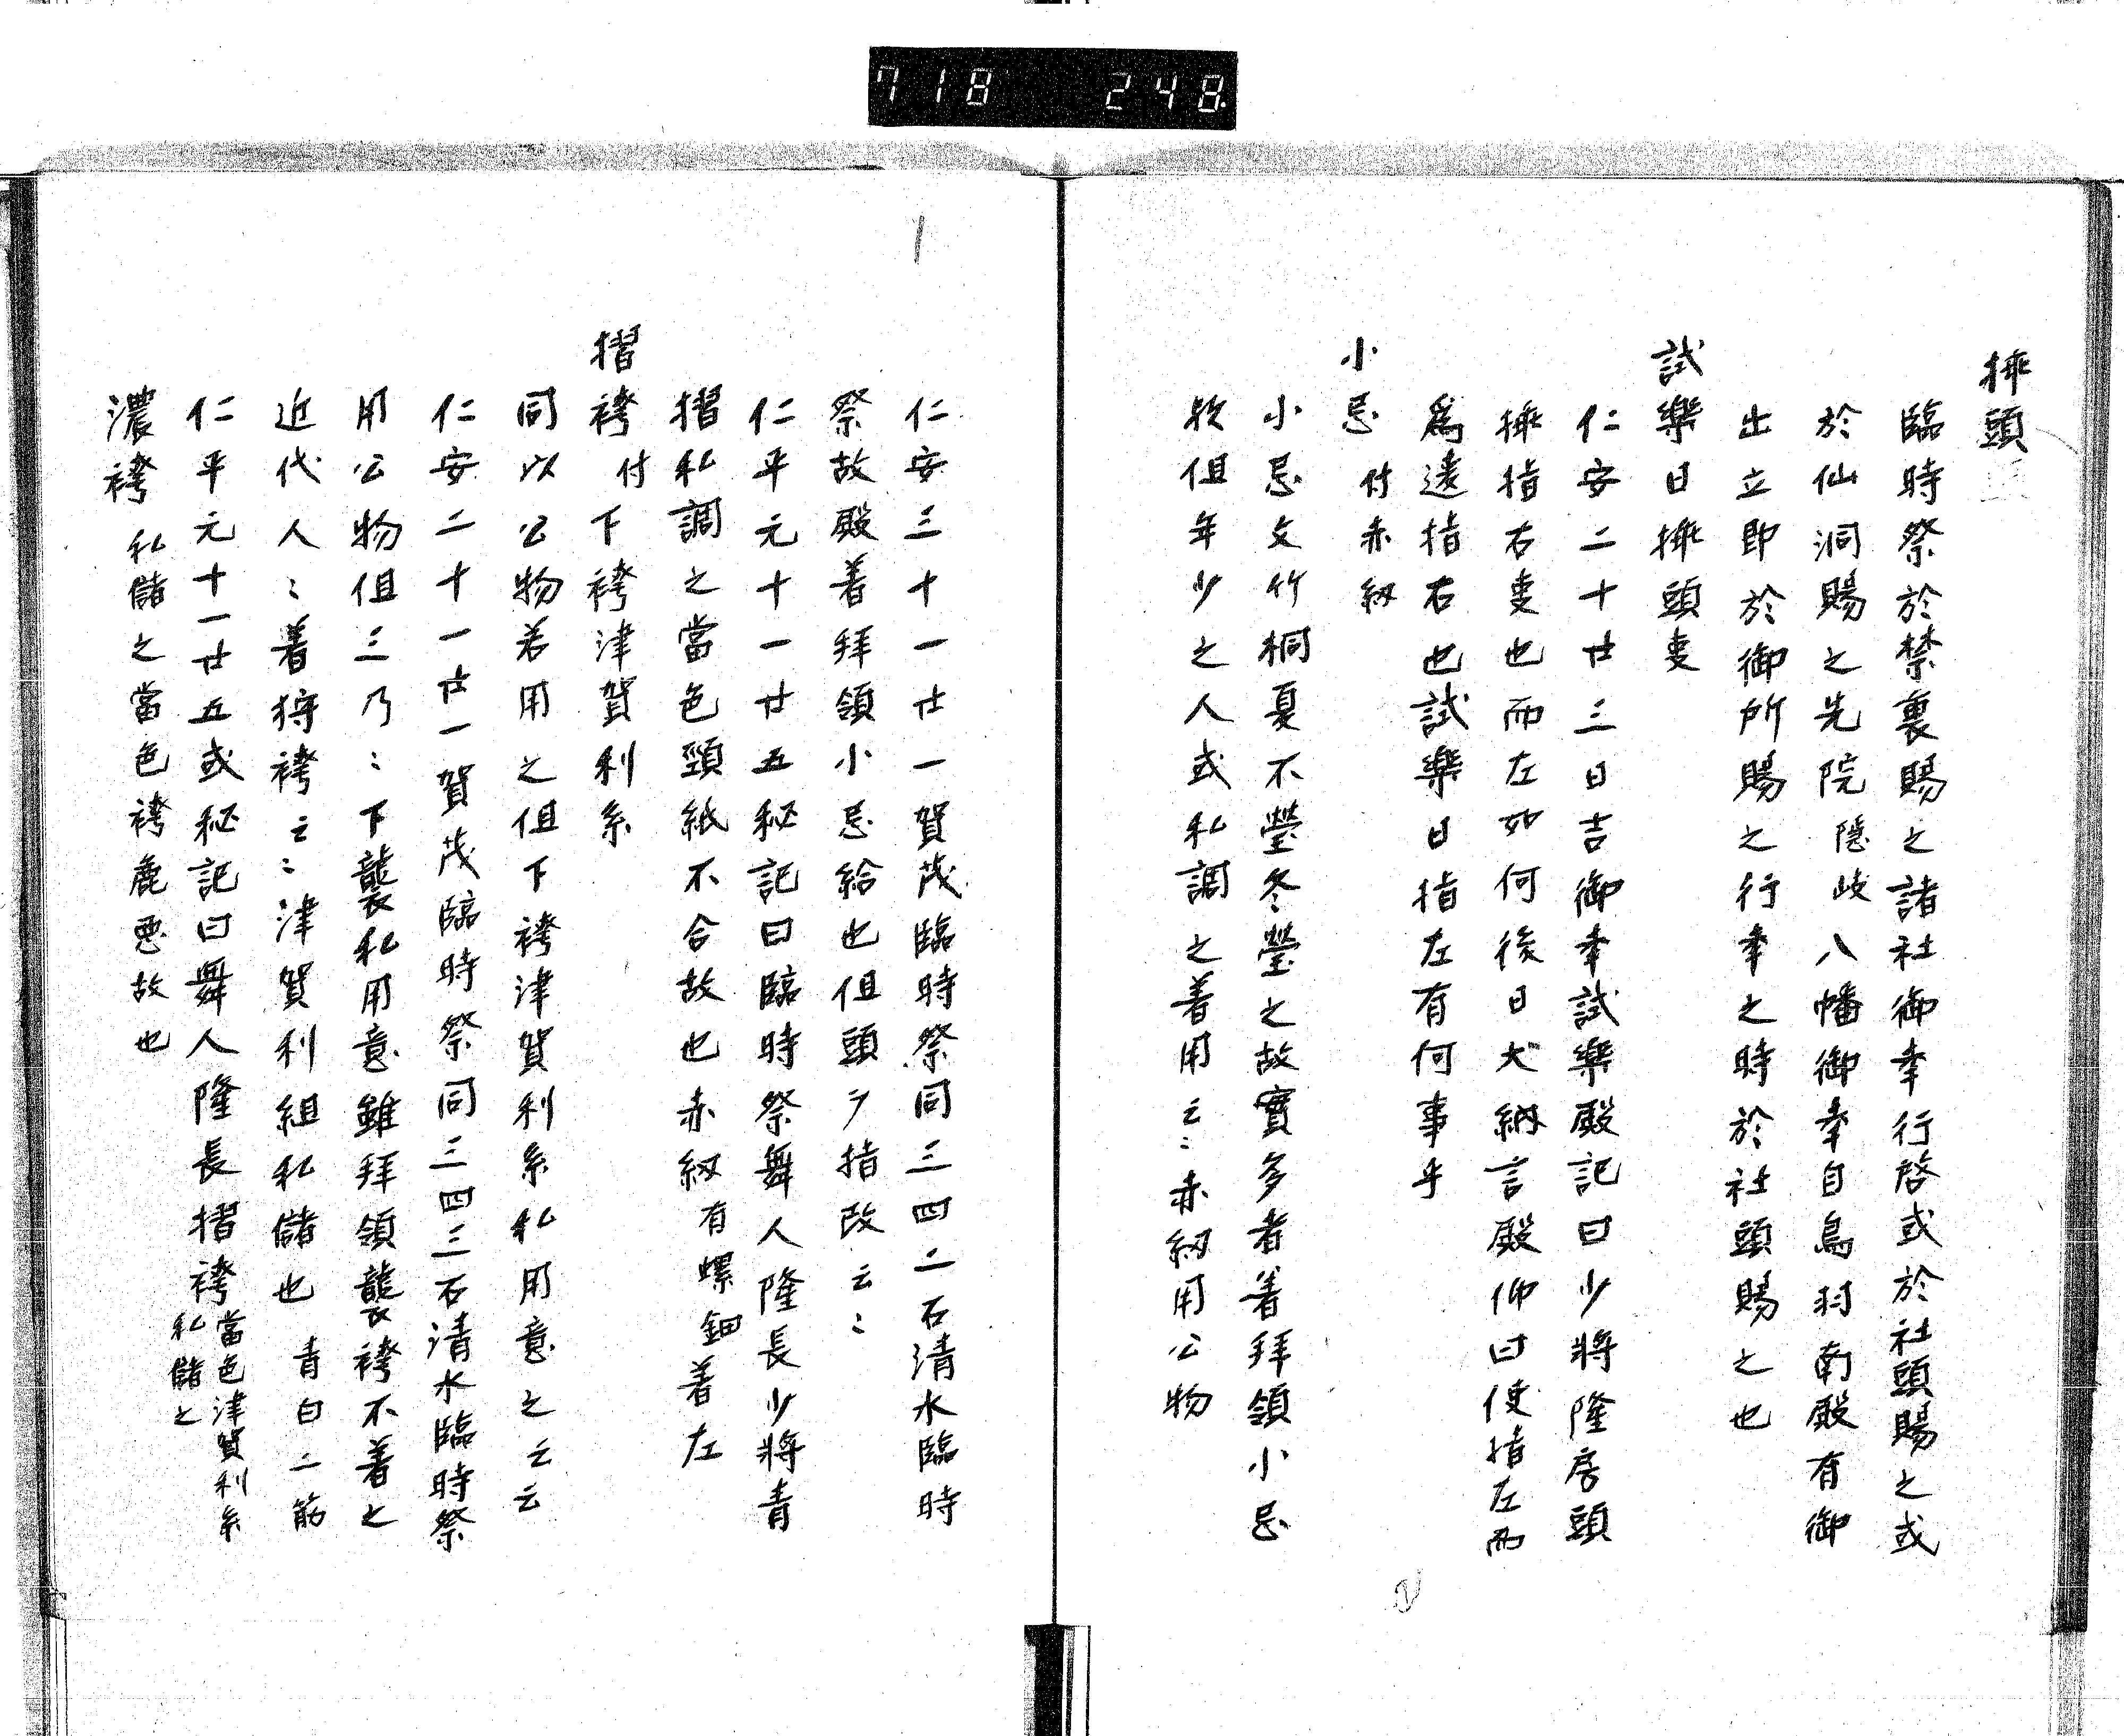 718 248
挿頭
臨時祭於禁裏賜之諸社御幸行啓或於社頭賜之或
於仙洞賜之先院隠岐八幡御幸自鳥羽南殿有御
出立即於御所賜之行幸之時於社頭賜之也
試樂日挿頭事
仁安二十廿三日吉御幸試樂殿記曰少將隆房頭
挿指右事也而左如何後日大納言殿仰曰使指左而
為違指右也試樂日指左有何事乎
小忌 付赤紐
小忌文竹桐夏不瑩冬瑩之故實多者着拜領小忌
欤但年少之人或私調之着用云〻赤紐用公物
仁安三十一廿一賀茂臨時祭同三四二石清水臨時
祭故殿着拜領小忌給也但頭ヲ指改云〻
仁平元十一廿五秘記曰臨時祭舞人隆長少將青
摺私調之當色頸紙不合故也赤紐有螺鈿着左
摺袴付下袴津賀利糸
同以公物若用之但下袴津賀利糸私用意之云云
仁安二十一廿一賀茂臨時祭同三四三石清水臨時祭
用公物但三乃〻下襲私用意雖拜領襲袴不着之
近代人〻着狩袴云〻津賀利組私儲也 青白二筋
仁平元十一廿五或秘記曰舞人隆長摺袴當色津賀利糸私儲之
濃袴 私儲之當色袴麁悪故也